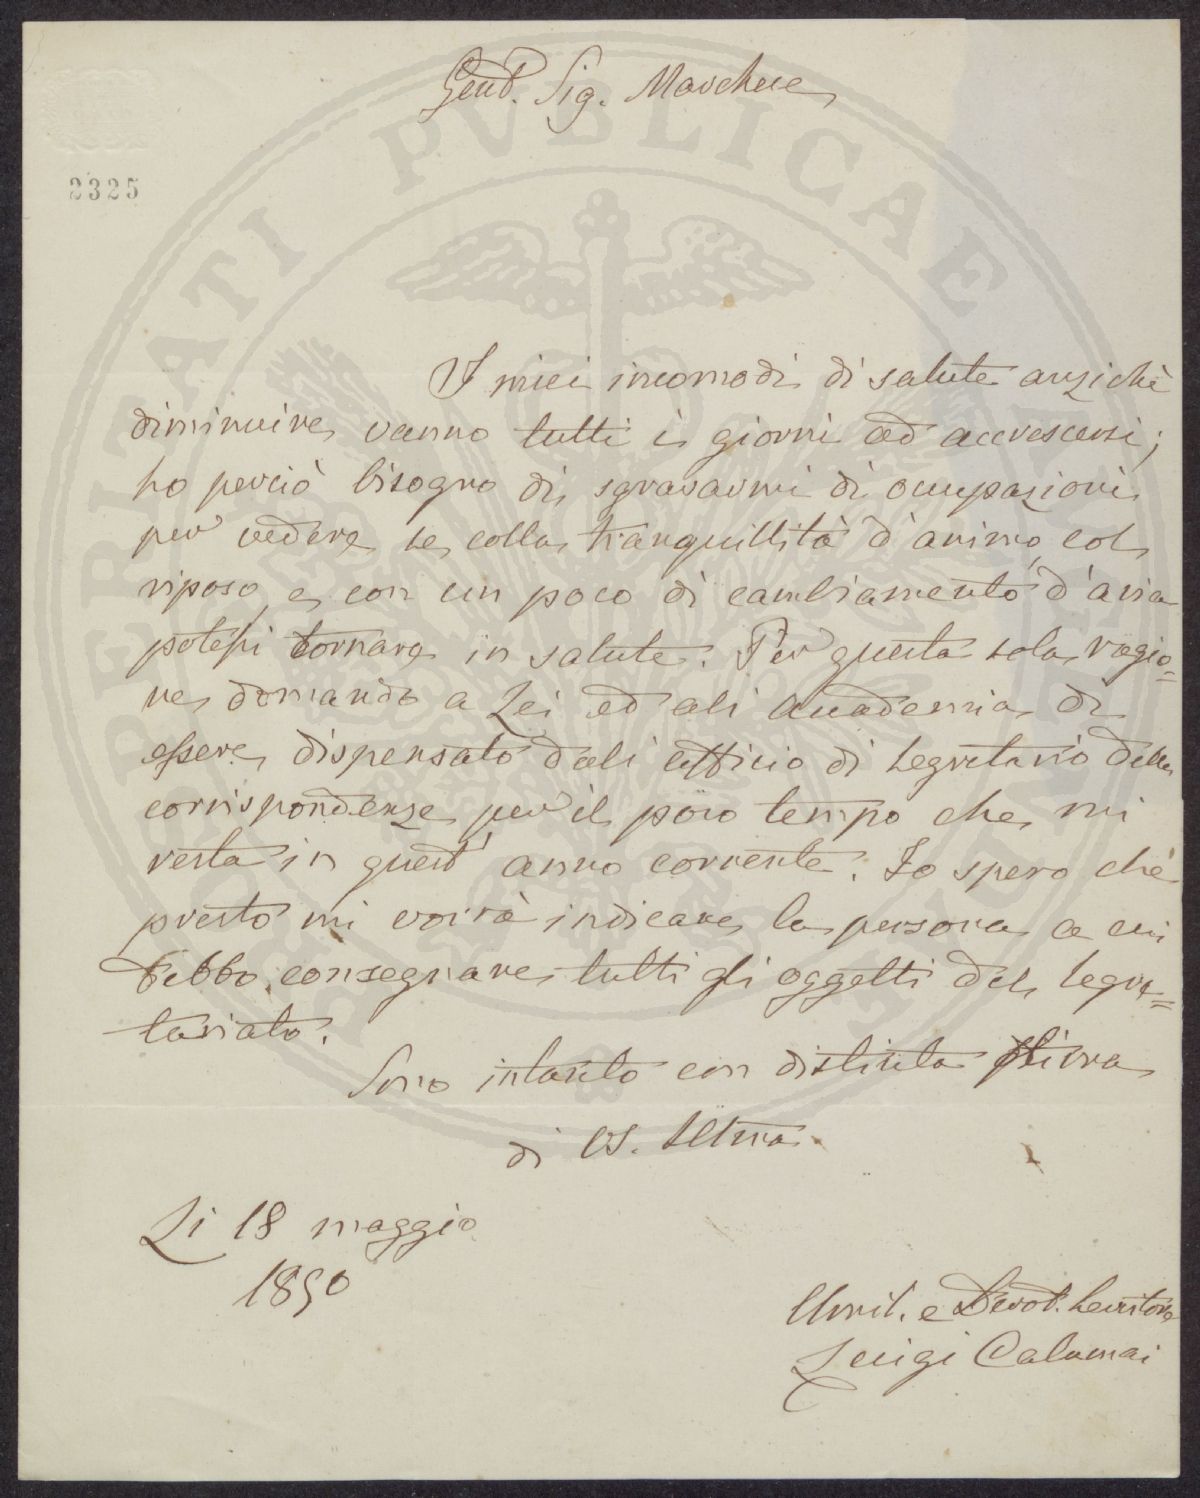 Gent. Sig. Marchese
2325
I miei incomodi di salute anzichè
diminuire vanno tutti i giorni ad accrescersi;
ho perciò bisogno di sgravarmi di occupazioni
per vedere se colla tranquillità d'animo, col
riposo e con un poco di cambiamento d'aria
potessi tornare in salute. Per questa sola ragio=
ne domando a Lei ed all Accademia di
essere dispensato dall ufficio di Segretario delle
corrispondenze per il poco tempo che mi
resta in quest' anno corrente. Io spero che
presto mi vorrà indicare la persona a cui
debbo consegnare tutti gli oggetti del Segre=
tariato.
Sono intanto con distinta stima
di VS. Illma.
Li 18 maggio
1850
Umil. e Devot. Servitore
Luigi Calamai
PROSPERITATI PVBLICAE AVGENDAE